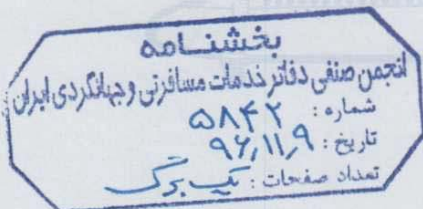 بخشنامه
انجمن صنفی دفاتر خدمات مسافرتی و جهانگردی ایران
شماره : ۵۸۴۲
تاریخ : ۹۶/۱۱/۹
تعداد صفحات : یک برگ